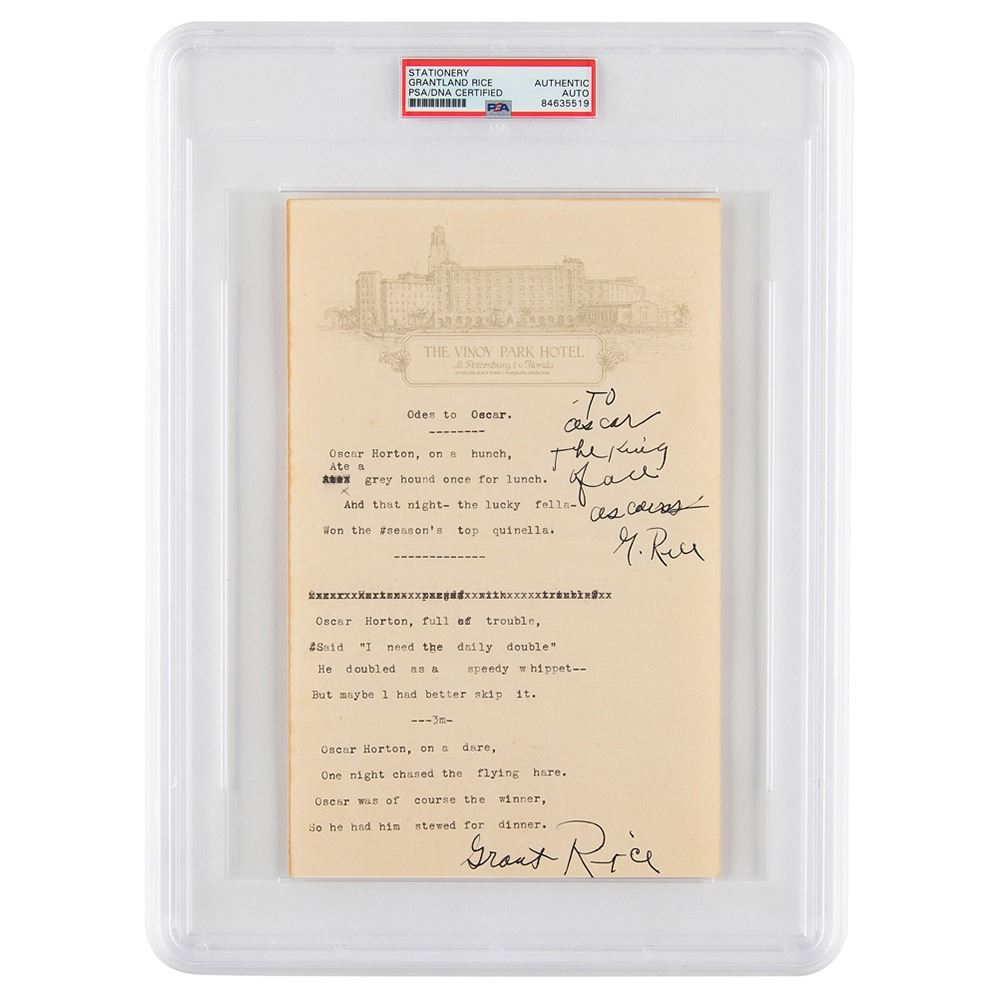 STATIONERY
GRANTLAND RICE
PSA/DNA CERTIFIED
AUTHENTIC
AUTO
84635519
PSA
THE VINOY PARK HOTEL
St. Petersburg Florida
MANAGING DIRECTOR
To
Oscar
The King
of all
Oscars
G. Rice
Odes to Oscar.
--------
Oscar Horton, on a hunch,
Ate a
grey hound once for lunch.
And that night- the lucky fella-
Won the #season's top quinella.
-------------
Oscar Horton, full of trouble,
#Said "I need the daily double"
He doubled as a speedy whippet--
But maybe I had better skip it.
---3m-
Oscar Horton, on a dare,
One night chased the flying hare.
Oscar was of course the winner,
So he had him stewed for dinner.
Grant Rice